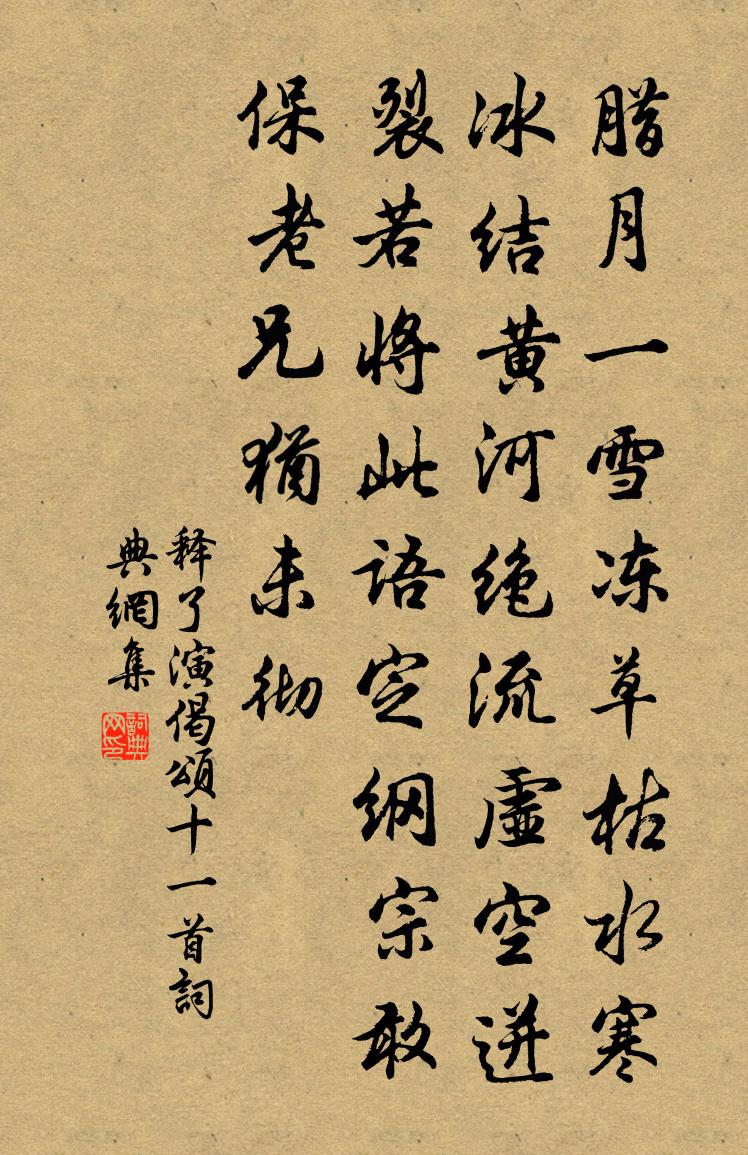 腊月一雪冻草枯水寒
冰结黄河绝流虚空迸
裂若将此语定纲宗敢
保老兄犹未彻
释了演偈頌十一首詞
典網集
詞典
网印